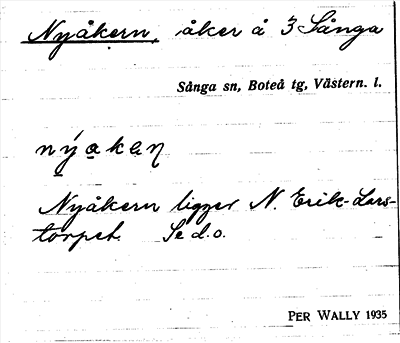 Nyåkern, åker å 3 Sånga
Sånga sn, Boteå tg, Västern. l.
nýa̱ka̱ṇ
Nyåkern ligger N. Erik-Lars-
torpet. Se d.o.
PER WALLY 1935